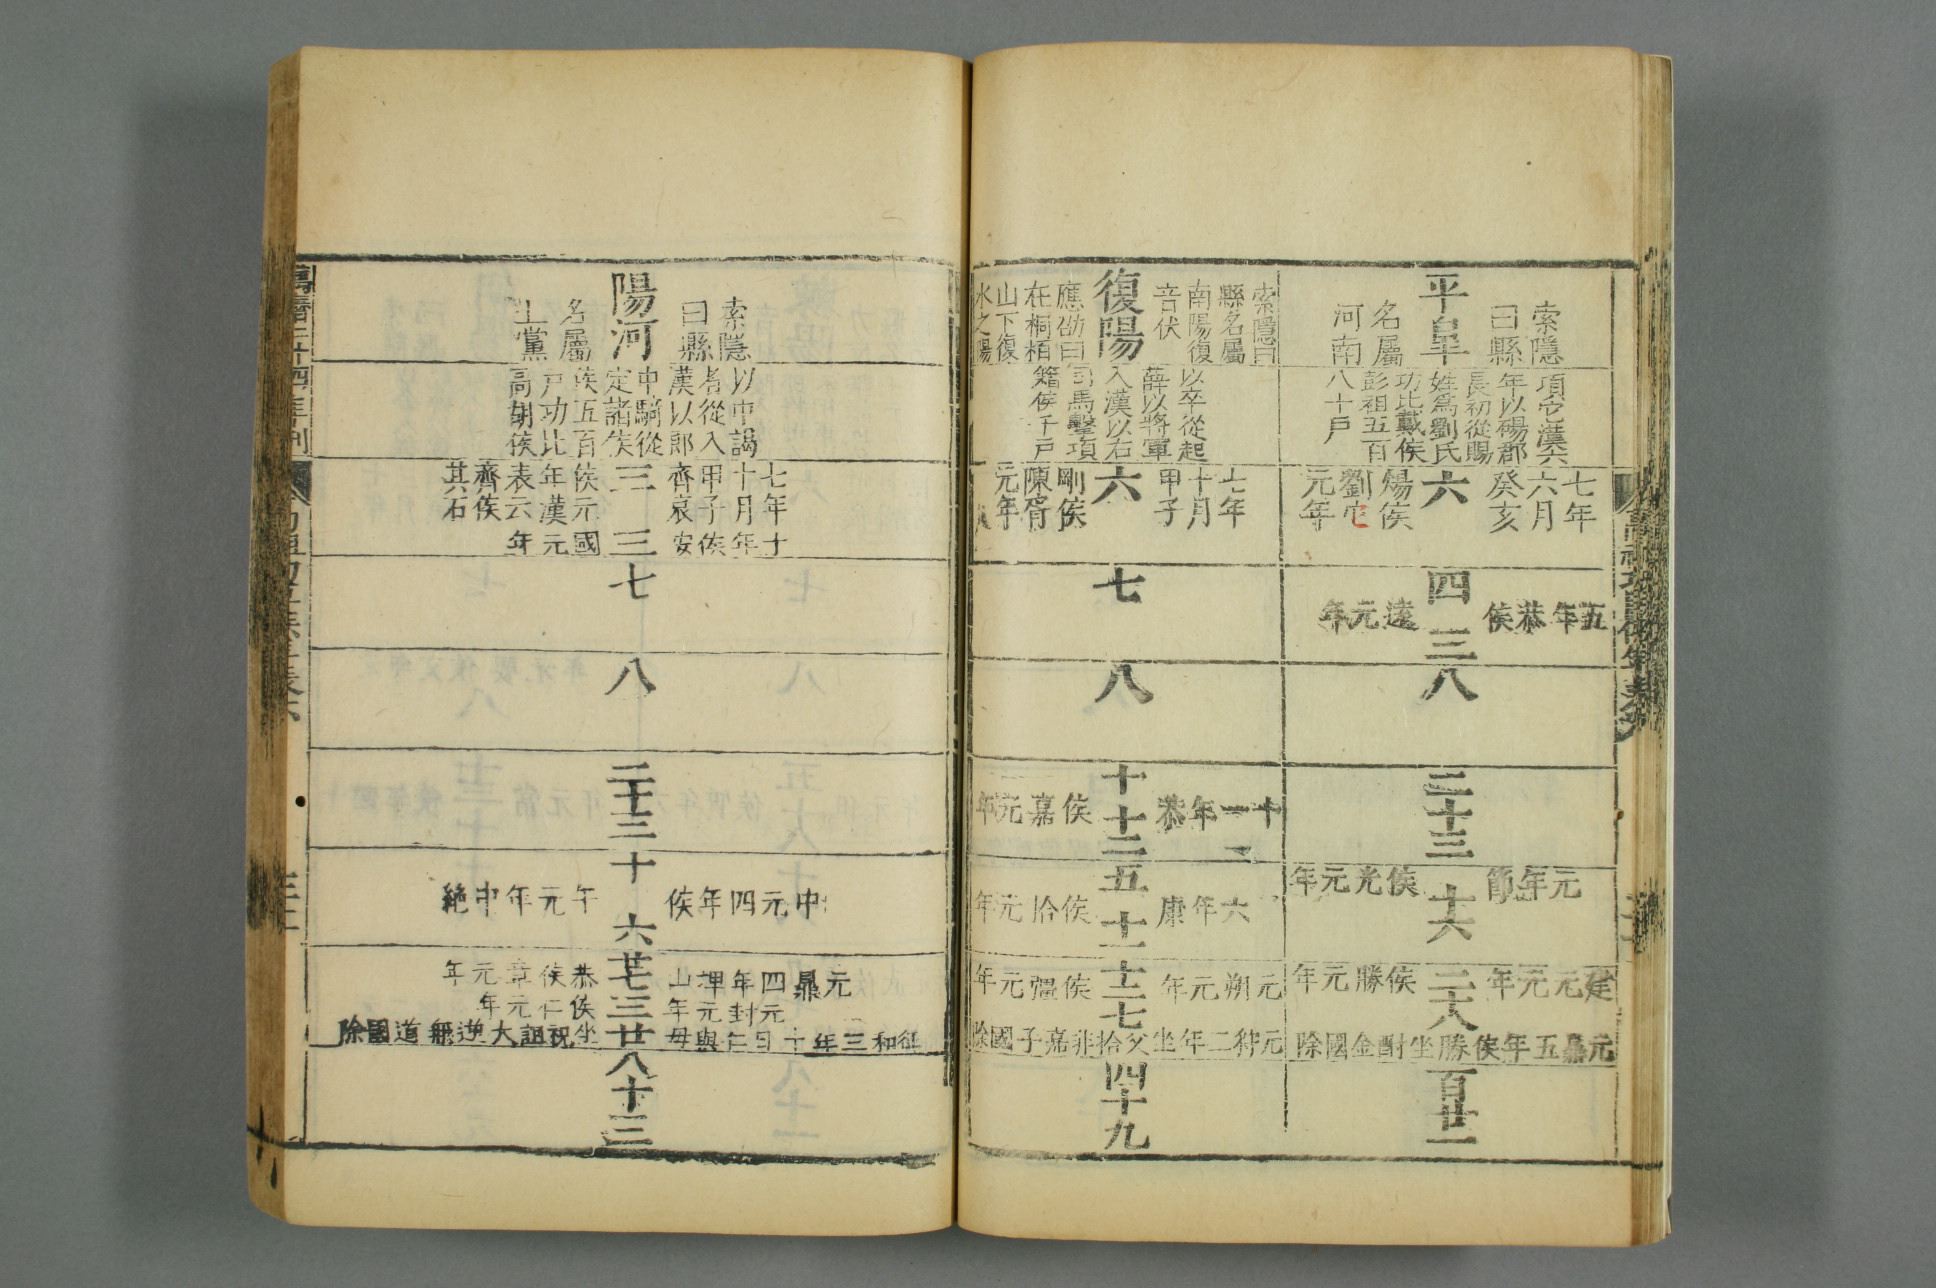 索隱
曰縣
平皐
名屬
河南
項它漢六
年以碭郡
長初從賜
姓爲劉氏
功比戴侯
彭祖五百
八十戶
七年
六月
癸亥
六
煬侯
劉它
元年
五年恭侯
四三
遠元年
八
二十三
元年節
十六
侯光元年
建元元年
二十八
侯勝元年
元鼎五年侯勝坐酎金國除
百廿一
索隱曰
縣名屬
南陽復
音伏
復陽
應劭曰
在桐栢
山下復
水之陽
以卒從起
薛以將軍
入漢以右
司馬擊項
籍侯千戶
七年
十月
甲子
六
剛侯
陳胥
元年
七
八
十一年恭
十十三
侯嘉元年
六年康
五十一
侯拾元年
元朔元年
十二七
侯彊元年
元狩二年坐父拾非嘉子國除
四十九
索隱
曰縣
陽河
名屬
上黨
以中謁
者從入
漢以郎
中騎從
定諸侯
侯五百
戶功比
高胡侯
七年十
十月年
甲子侯
齊哀安
三三
侯元國
年漢元
表云年
齊侯
其石
七
八
二十三
中元四年侯
十六
午元年中絶
元鼎四年埋山
恭侯章元年
元封元年
侯仁元年
廿七三廿
征和三年十月仁與母坐祝詛大逆無道國除
八十三